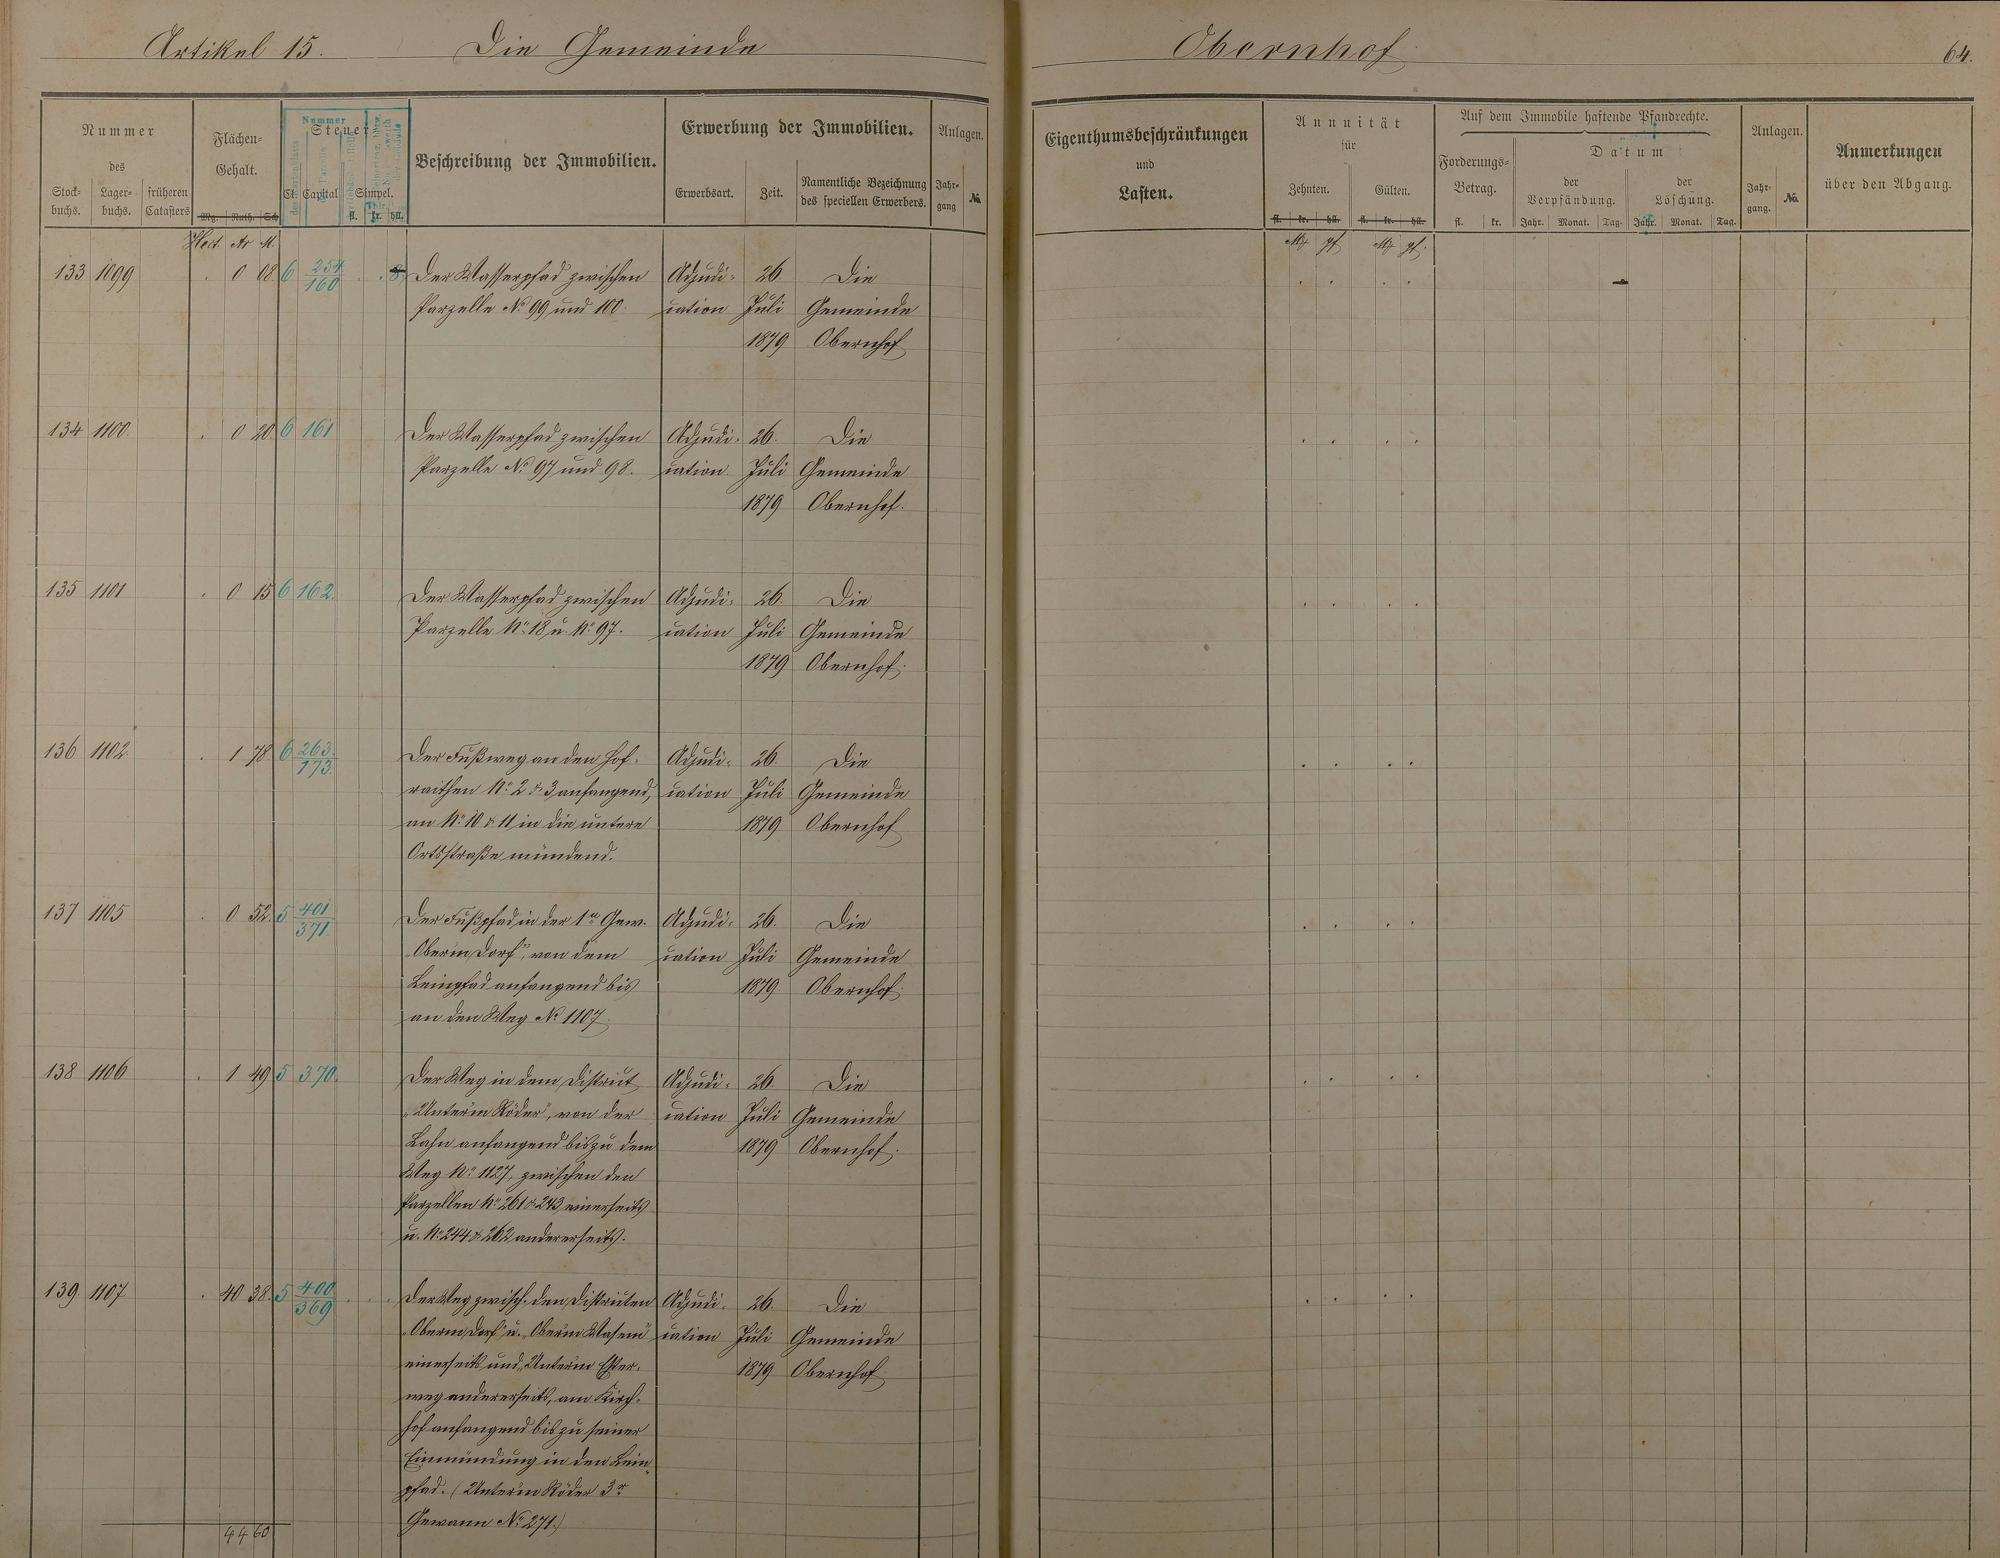 Artikel 15. Die Gemeinde Obernhof 64.
Nummer
des
Stock-
buchs.
Lager-
buchs.
früheren
Catasters
Flächen-
Gehalt.
Mg. Ruth. Sch
Hect Ar M.
Nummer
Steuer
Cl. Capital Simpel.
fl. kr. hll.
Beschreibung der Immobilien.
Erwerbung der Immobilien.
Erwerbsart. Zeit.
Namentliche Bezeichnung
des speciellen Erwerbers.
Anlagen.
Jahr-
gang
No.
Eigenthumsbeschränkungen
und
Lasten.
Annuität
für
Zehnten. Gülten.
fl. kr. hll. fl. kr. hll.
Mk pf. Mk pf.
Auf dem Immobile haftende Pfandrechte.
Forderungs-
Betrag.
fl. kr.
Datum
der
Verpfändung.
Jahr. Monat. Tag.
der
Löschung.
Jahr. Monat. Tag.
Anlagen.
Jahr-
gang.
No.
Anmerkungen
über den Abgang.
133 1099 . 0 08 6 254/160 Der Wasserpfad zwischen Adjudi- 26. Die
Parzelle No 99 und 100. cation Juli Gemeinde
1879 Obernhof
134 1100. . 0 20 6 161 Der Wasserpfad zwischen Adjudi- 26. Die
Parzelle No 97 und 98. cation Juli Gemeinde
1879 Obernhof.
135 1101 . 0 15 6 162. Der Wasserpfad zwischen Adjudi- 26. Die
Parzelle No 18 u. No 97. cation Juli Gemeinde
1879 Obernhof.
136 1102. . 1 78 6 263/173 Der Fußweg an den Hof- Adjudi- 26. Die
raithen No 2 & 3 anfangend, cation Juli Gemeinde
an No 10 & 11 in die untere 1879 Obernhof
Ortsstraße mündend.
137 1105 . 0 52. 5 401/371. Der Fußpfad in der 1n Gew. Adjudi- 26. Die
„Oberm Dorf", von dem cation Juli Gemeinde
Leinpfad anfangend bis 1879 Obernhof.
an den Weg No 1107.
138 1106 . 1 49 5 370. Der Weg in dem District Adjudi- 26. Die
„Unterm Röder", von der cation Juli Gemeinde
Lahn anfangend bis zu dem 1879 Obernhof.
Weg No 1127, zwischen den
Parzellen No 261 & 243 einerseits
u. No 244 & 262 andererseits.
139 1107 . 40 38. 5 400/369 Der Weg zwisch. den Districten Adjudi- 26. Die
„Oberm Dorf" u. „Oberm Wasem" cation Juli Gemeinde
einerseits und „Unterm 1879 Obernhof
weg andererseits, am Kirch-
hof anfangend bis zu seiner
Einmündung in den Lein-
pfad. (Unterm Röder 3r
Gewann No 271.)
44 60